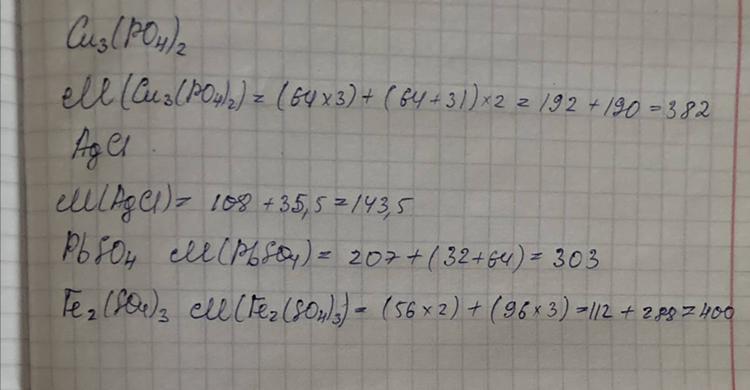 Cu₃(PO₄)₂
M(Cu₃(PO₄)₂) = (64×3) + (64+31)×2 = 192 + 190 = 382
AgCl
M(AgCl) = 108 + 35,5 = 143,5
PbSO₄ M(PbSO₄) = 207 + (32+64) = 303
Fe₂(SO₄)₃ M(Fe₂(SO₄)₃) = (56×2) + (96×3) = 112 + 288 = 400